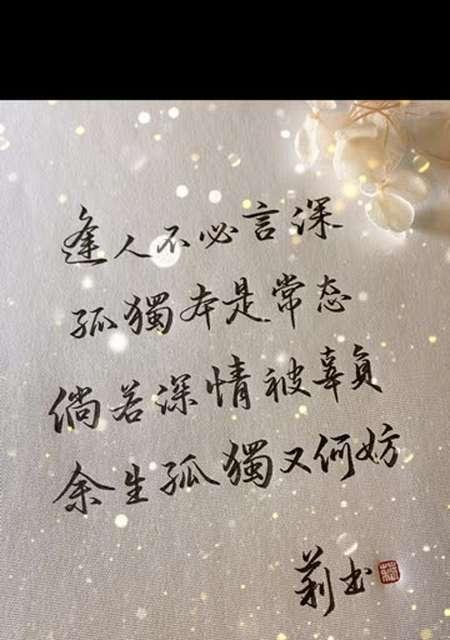 逢人不必言深
孤獨本是常态
倘若深情被辜負
余生孤獨又何妨
莉书